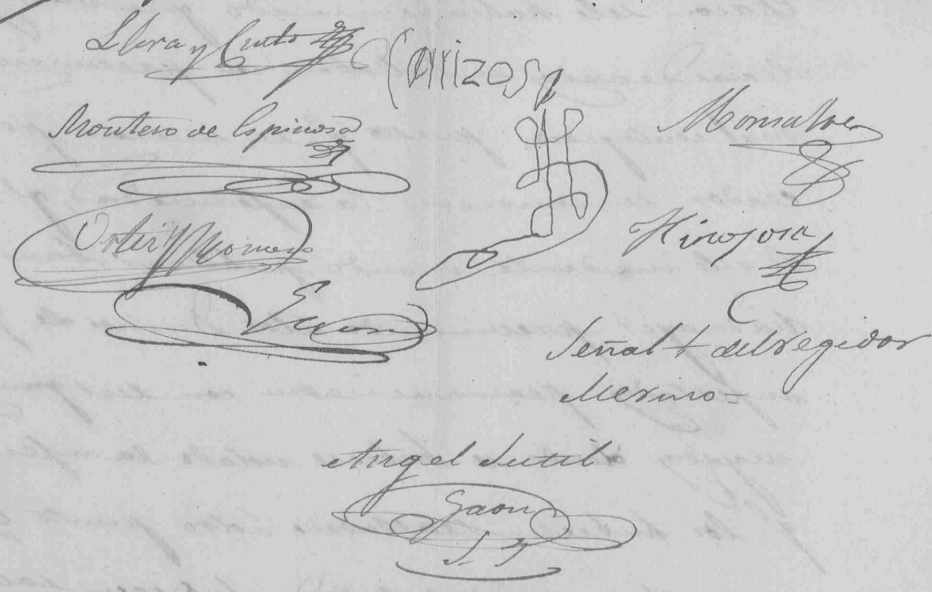 Llera y Cueto
Carrizosa
Montero de Espinosa
Monsalve
Ortiz Romero
Hinojosa
Señal + del regidor
Merino=
Angel Sutil
S. I.